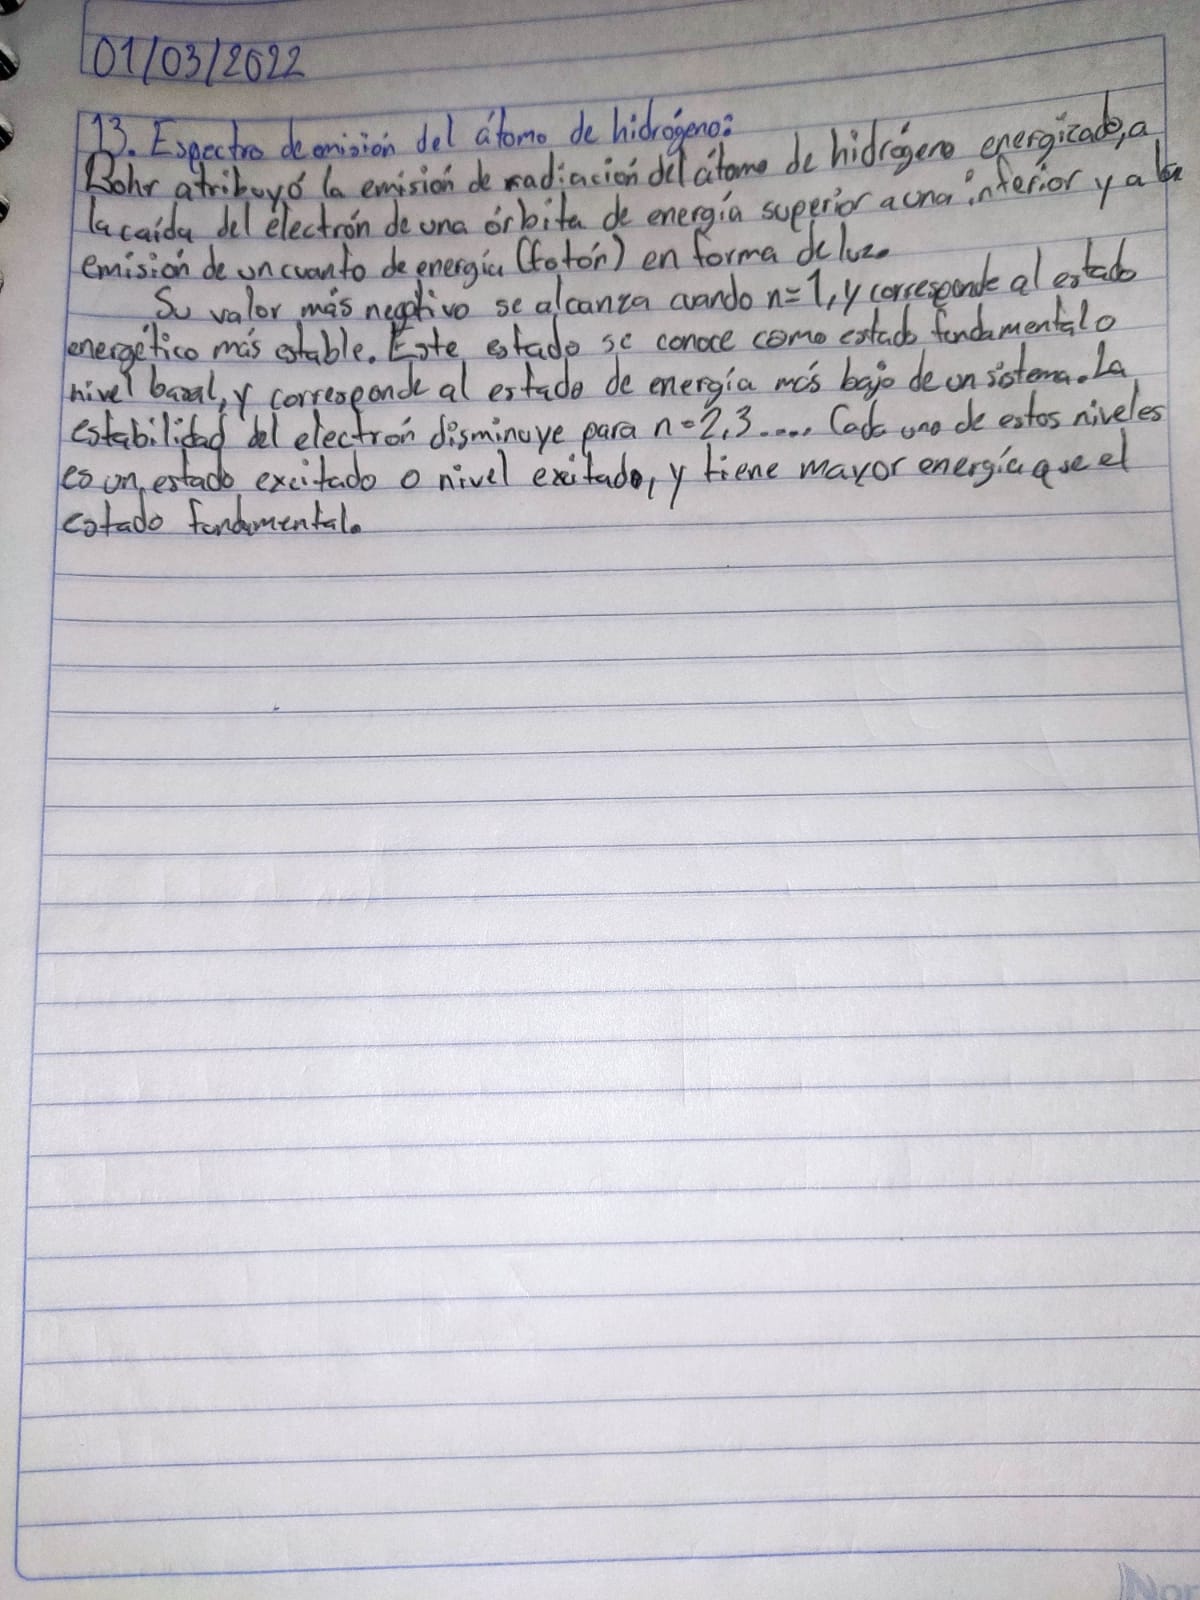 01/03/2022
13. Espectro de emisión del átomo de hidrógeno:
Bohr atribuyó la emisión de radiación del átomo de hidrógeno energizado, a
la caída del electrón de una órbita de energía superior a una inferior y a la
emisión de un cuanto de energía (fotón) en forma de luz.
Su valor más negativo se alcanza cuando n=1, y corresponde al estado
energético más estable. Este estado se conoce como estado fundamental o
nivel basal, y corresponde al estado de energía más bajo de un sistema. La
estabilidad del electrón disminuye para n=2,3.... Cada uno de estos niveles
es un estado excitado o nivel exitado, y tiene mayor energía que el
estado fundamental.
Nor